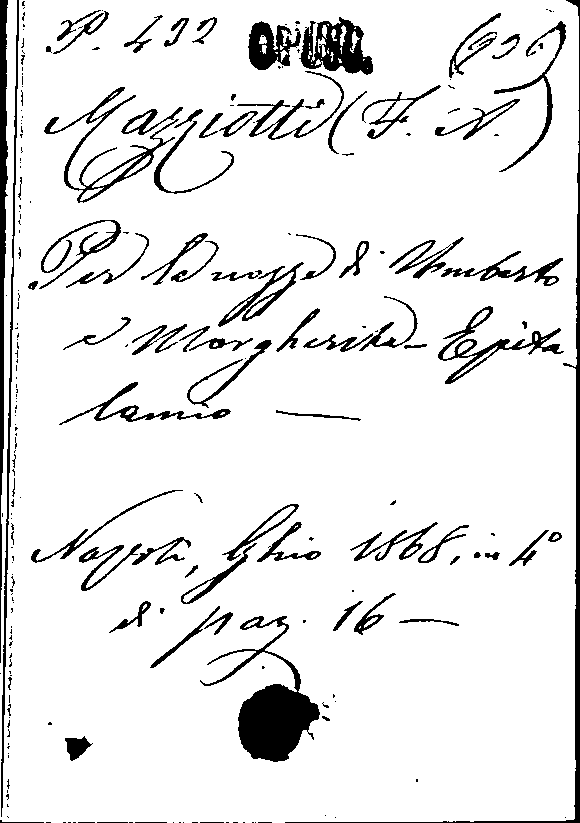 P. 432 OPUSC.
Mazziotti (F. A.)
Per le nozze di Umberto
e Margherita - Epita-
lamio —
Napoli, Ghio 1868, in 4°
di pag. 16 —